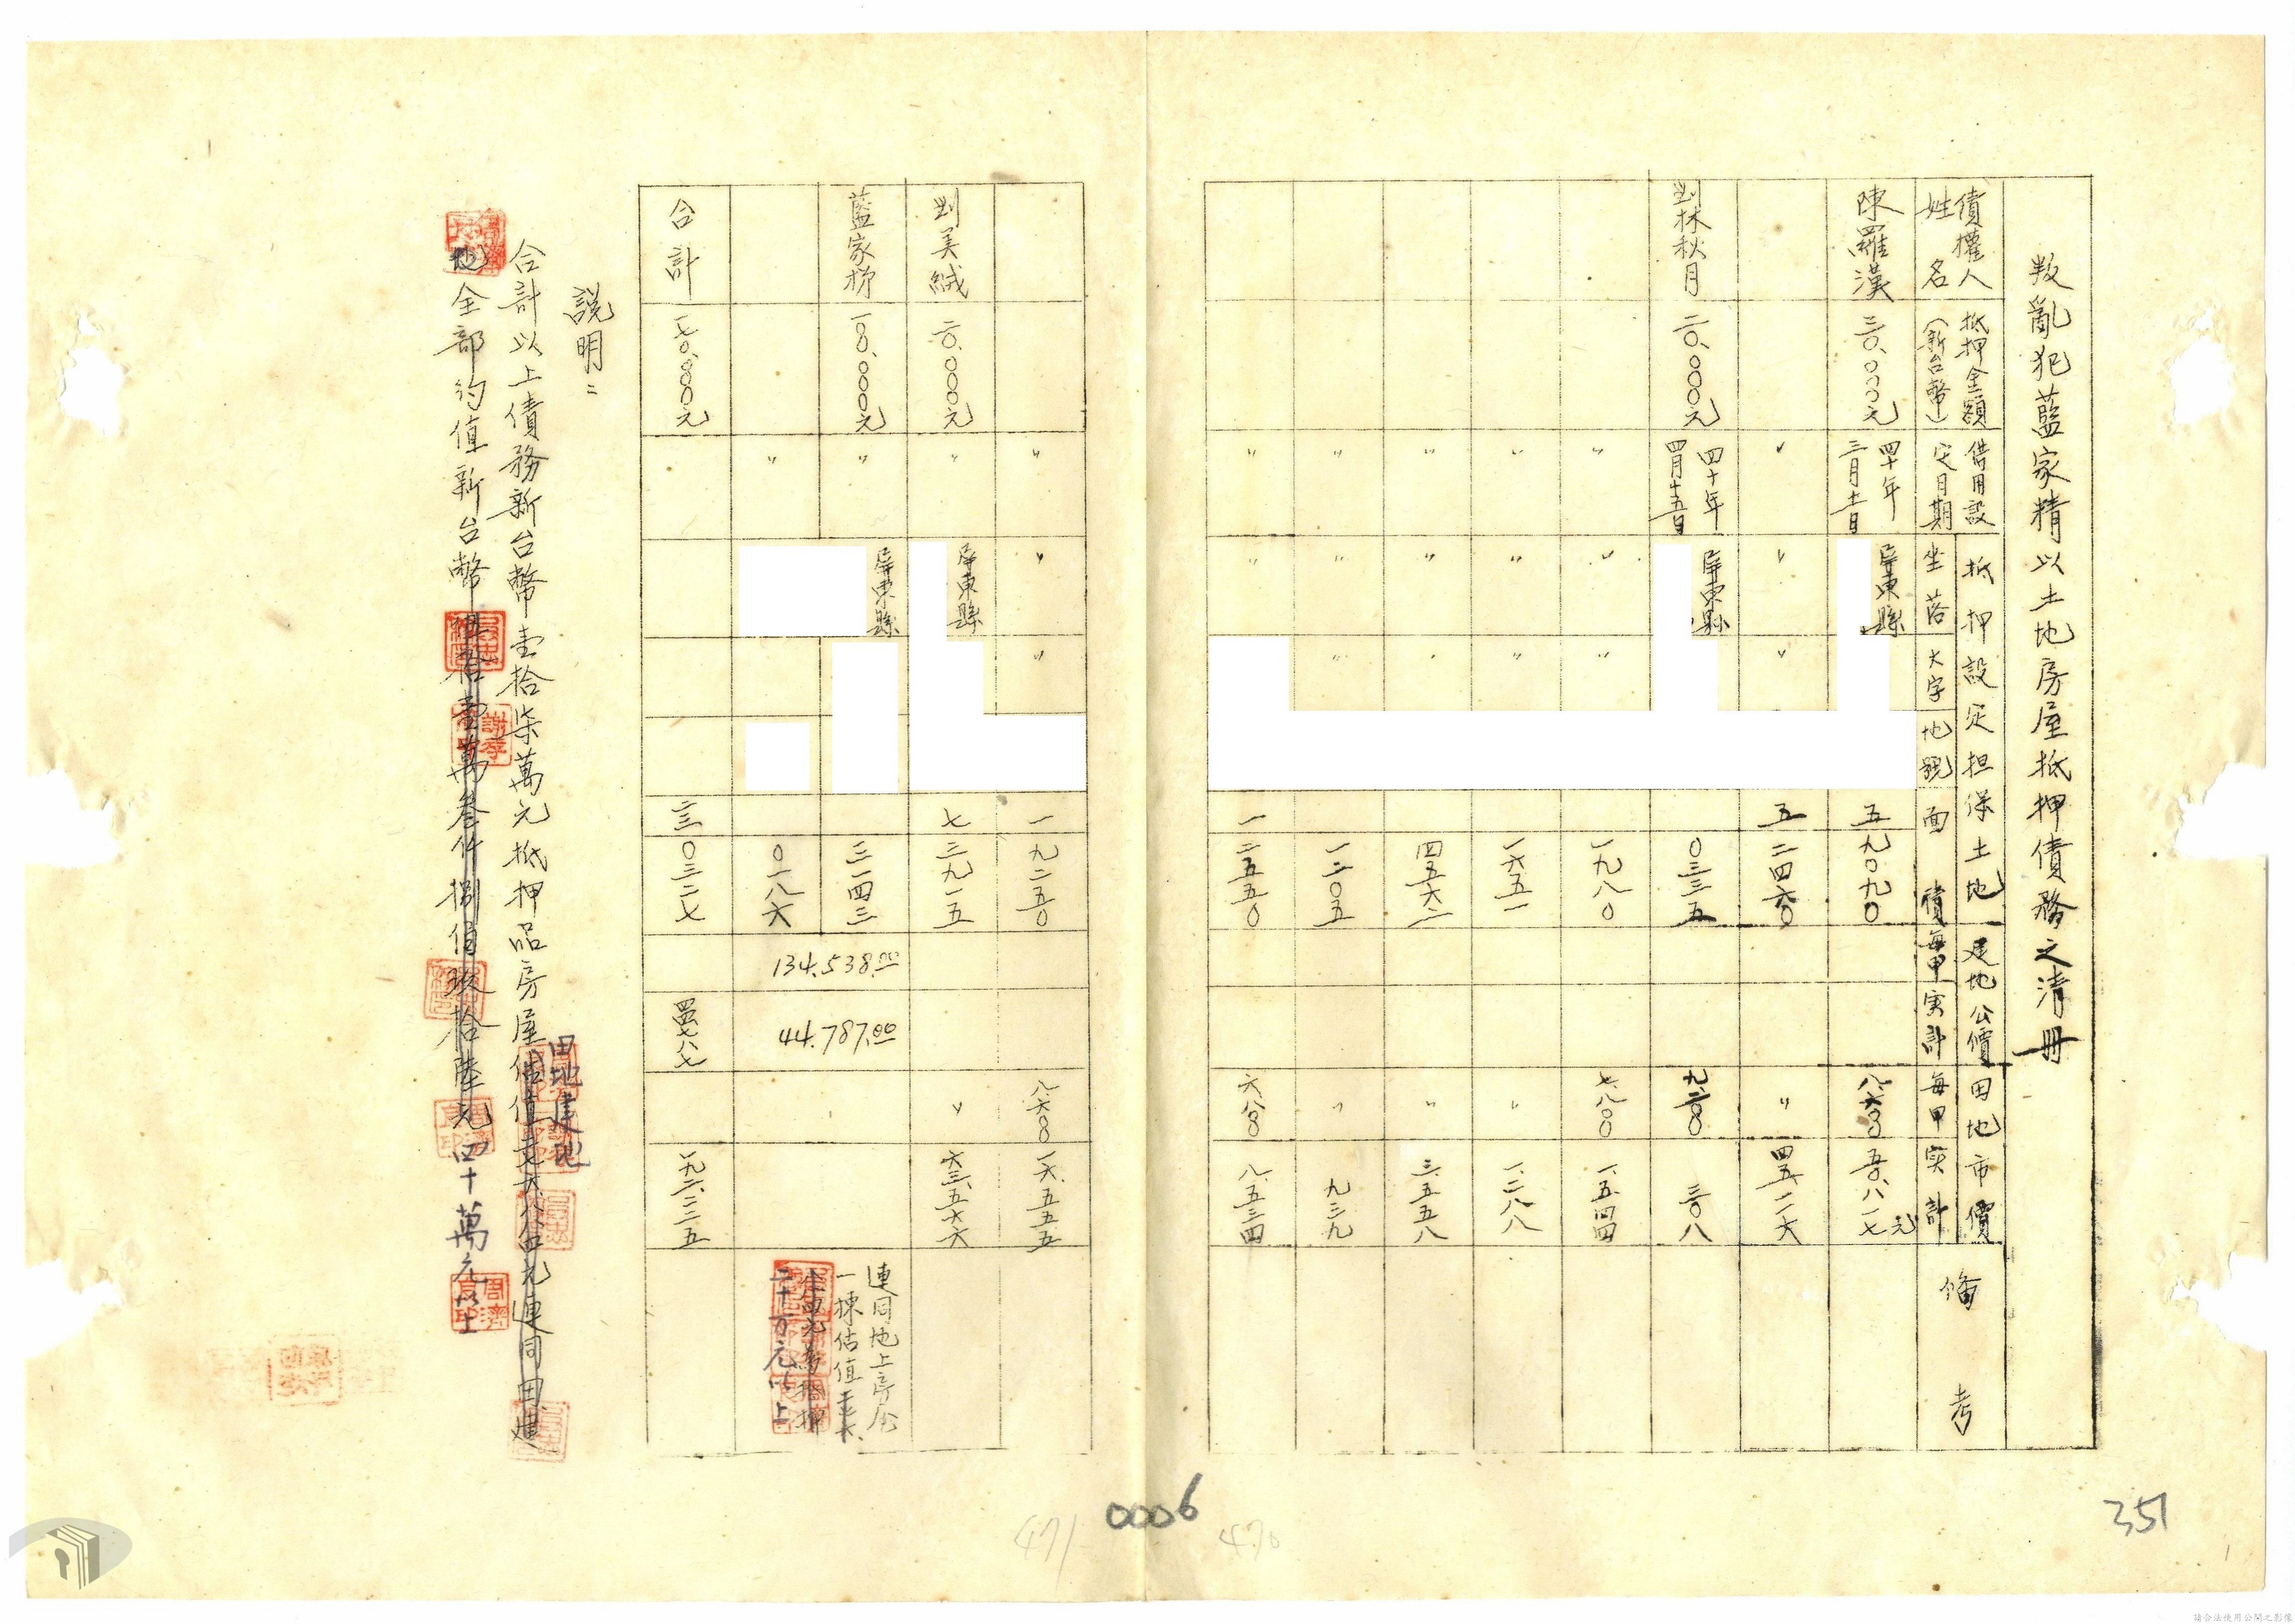 叛亂犯藍家精以土地房屋抵押債務之清冊
債權人姓名
抵押金額(新台幣)
借用設定日期
抵押設定担保土地
坐落
大字
地號
面積
建地公價
每甲
实計
田地市價
每甲
实計
俻考
陳羅漢
三〇.〇〇〇元
四十年三月十二日
屏東縣
五
九〇九〇
八.六〇〇
五〇.八一七元
〃
〃
〃
五
二四六〇
〃
四五.一一六
刘林秋月
二〇.〇〇〇元
四十年四月十五日
屏東縣
〇三三五
九.二〇〇
三〇八
〃
〃
〃
一九八〇
七.八〇〇
一.五四四
〃
〃
〃
一六五一
〃
一.二八八
〃
〃
〃
四五六二
〃
三.五五八
〃
〃
〃
一二〇五
〃
九三九
〃
〃
一
二五五〇
六.八〇〇
八.五三四
〃
〃
〃
一
九二五〇
八.六〇〇
一六.五五五
刘美絨
二〇.〇〇〇元
〃
屏東縣
七
三九一五
〃
六三.五六六
藍家梯
一〇〇.〇〇〇元
〃
屏東縣
三一四三
〃
〇一八六
134.538.00
44.787.00
連同地上房屋
一棟估值
二十万元以上
合計
一七〇.〇〇〇元
二三
〇三二七
四四七八七
一九二.二二五
說明:
合計以上債務新台幣壹拾柒萬元抵押品房屋估值連同田建
田地建地
地全部約值新台幣
萬叁仟捌佰玖拾陸元四十萬元以上
周濟良印
0006
471
470
351
請合法使用公開之影像